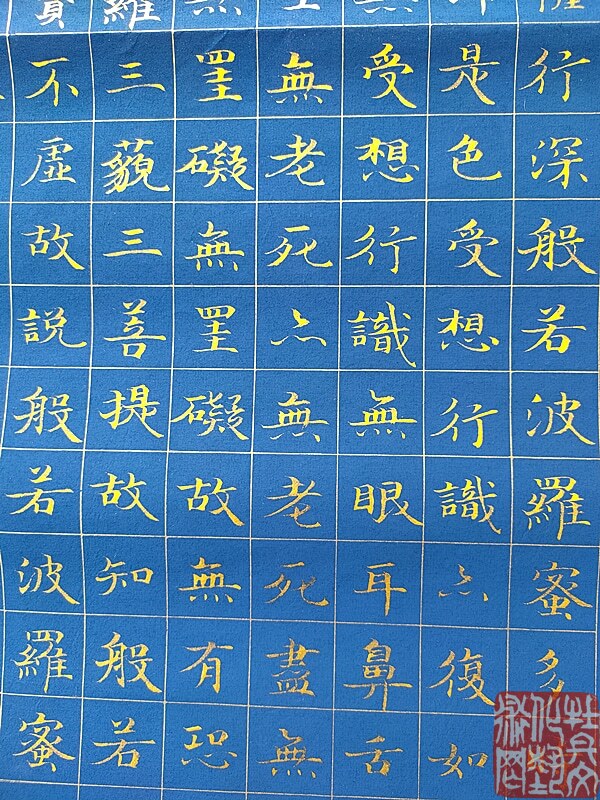 行深般若波羅蜜多
是色受想行識亦復如
受想行識無眼耳鼻舌
無老死亦無老死盡無
罣礙無罣礙故無有恐
三藐三菩提故知般若
不虛故說般若波羅蜜